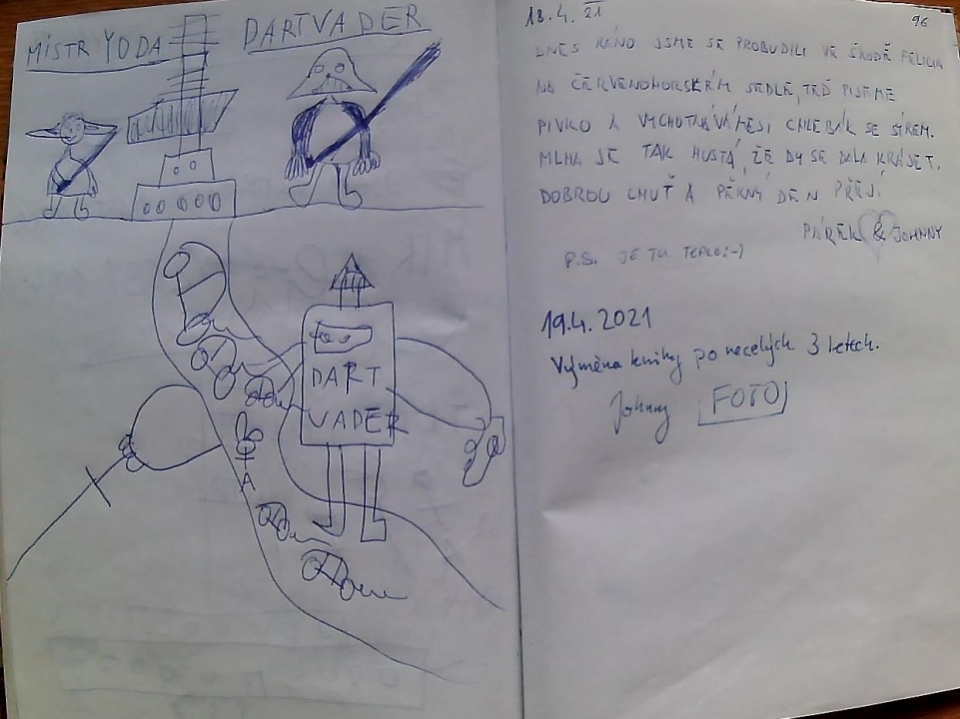 MISTR YODA
DARTVADER
DART
VADER
18.4. 21
96
DNES RÁNO JSME SE PROBUDILI VE ŠKODĚ FELICIA
NA ČERVENOHORSKÉM SEDLE, TEĎ PIJEME
PIVKO A VYCHUTNÁVÁME SI CHLEBÁK SE SÝREM.
MLHA JE TAK HUSTÁ, ŽE BY SE DALA KRÁJET.
DOBROU CHUŤ A PĚKNÝ DEN PŘEJÍ
PÁREK & JOHNNY
P.S. JE TU TEPLO :-)
19.4. 2021
Výměna knihy po necelých 3 letech.
Johnny FOTO